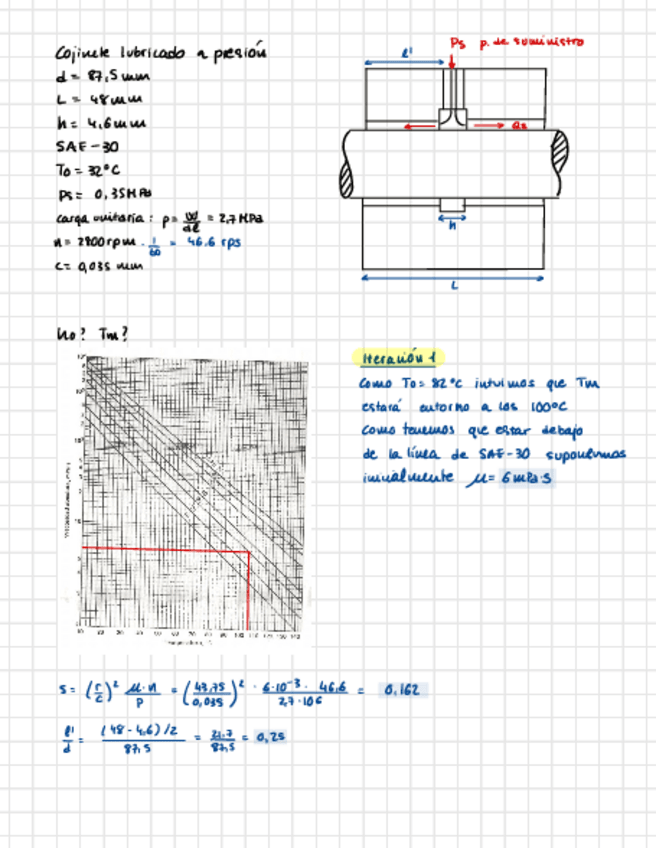 Cojinete lubricado a presión
d = 87,5 mm
L = 48 mm
h = 4,6 mm
SAE-30
To = 32°C
Ps = 0,35 MPa
carga unitaria: p = W/dl = 2,7 MPa
n = 2800 rpm · 1/60 = 46.6 rps
c = 0,035 mm
Ps p. de suministro
l'
Qs
h
L
ho? Tm?
Iteración 1
Como To = 82°C intuimos que Tm
estará entorno a los 100°C
Como tenemos que estar debajo
de la línea de SAE-30 suponemos
inicialmente μ = 6 mPa·s
s = (r/c)² μ·n/p = (43,75/0,035)² · 6·10⁻³ · 46,6/2,7·10⁶ = 0,162
l'/d = (48-4,6)/2/87,5 = 21.7/87,5 = 0,25